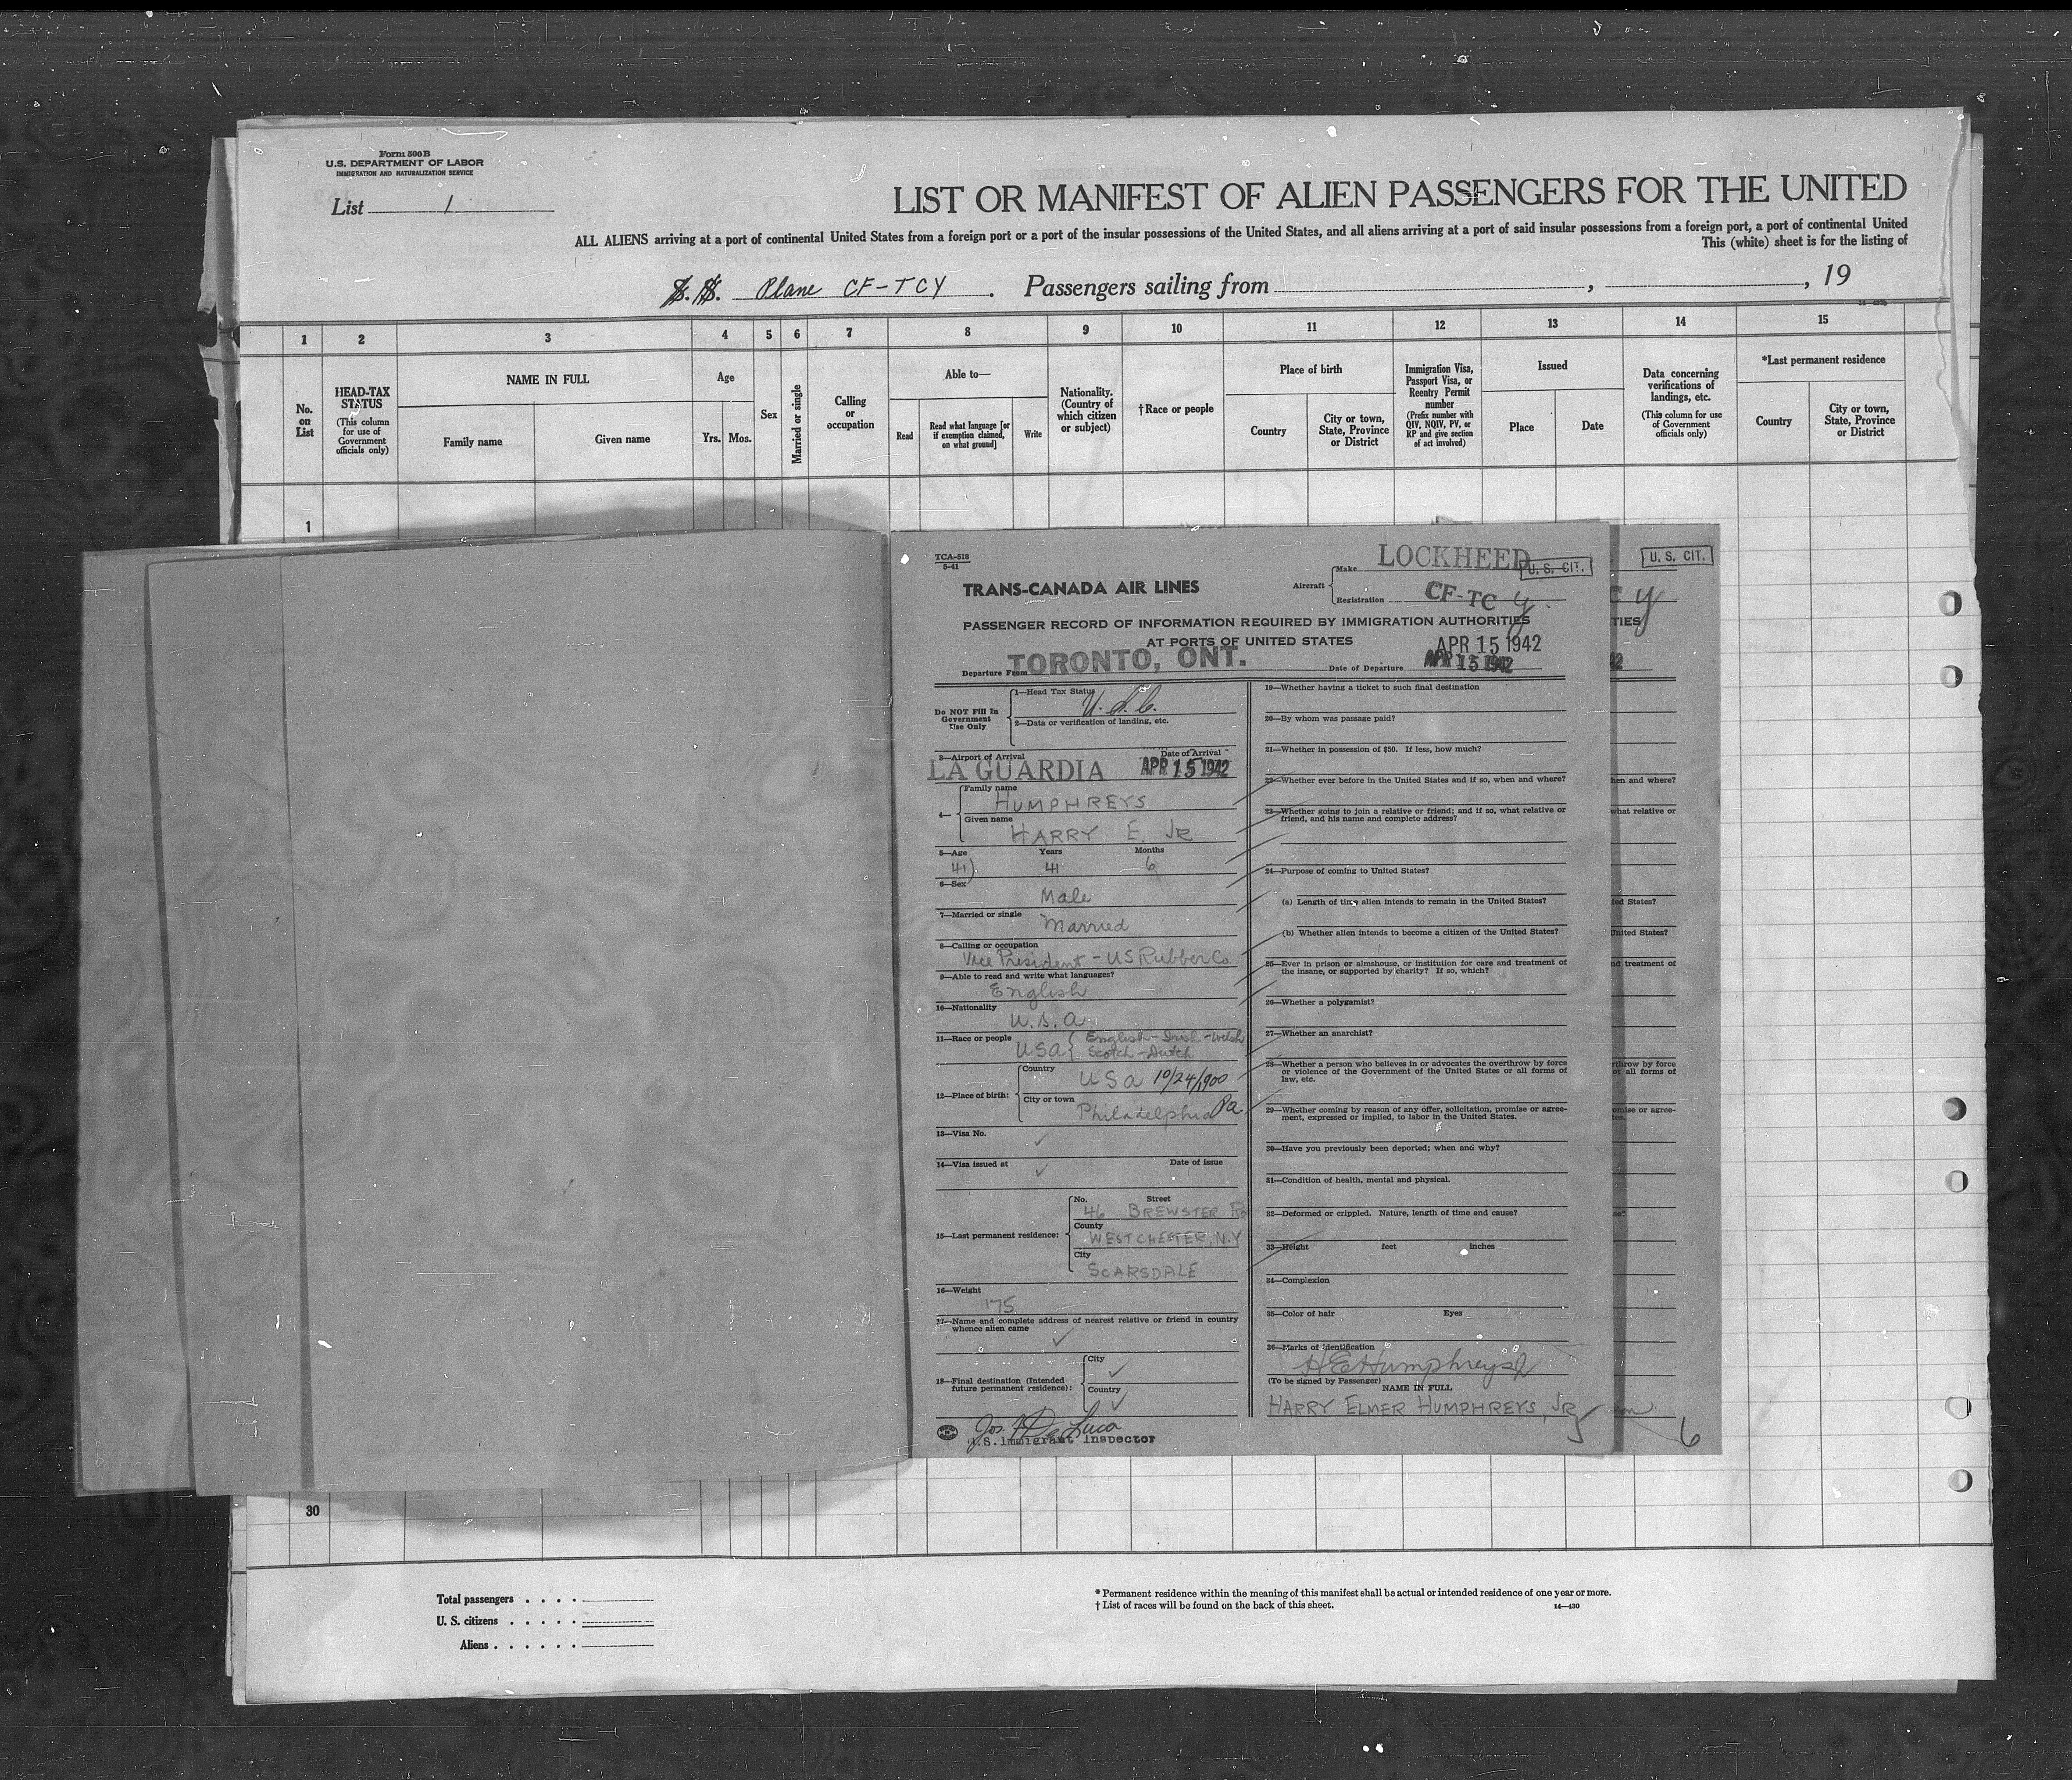 Form 500B
U.S. DEPARTMENT OF LABOR
IMMIGRATION AND NATURALIZATION SERVICE
List 1
LIST OR MANIFEST OF ALIEN PASSENGERS FOR THE UNITED
ALL ALIENS arriving at a port of continental United States from a foreign port or a port of the insular possessions of the United States, and all aliens arriving at a port of said insular possessions from a foreign port, a port of continental United
This (white) sheet is for the listing of
S. S. Plane CF-TCY . Passengers sailing from , , 19
1 2 3 4 5 6 7 8 9 10 11 12 13 14 15
No. on List
HEAD-TAX STATUS
(This column for use of Government officials only)
NAME IN FULL
Family name
Given name
Age
Yrs. Mos.
Sex
Married or single
Calling or occupation
Able to—
Read
Read what language [or if exemption claimed, on what ground]
Write
Nationality. (Country of which citizen or subject)
†Race or people
Place of birth
Country
City or town, State, Province or District
Immigration Visa, Passport Visa, or Reentry Permit number
(Prefix number with QIV, NQIV, PV, or RP and give section of act involved)
Issued
Place
Date
Data concerning verifications of landings, etc.
(This column for use of Government officials only)
*Last permanent residence
Country
City or town, State, Province or District
1
TCA-516
5-41
TRANS-CANADA AIR LINES
Aircraft
Make LOCKHEED
U. S. CIT.
Registration CF-TC Y
PASSENGER RECORD OF INFORMATION REQUIRED BY IMMIGRATION AUTHORITIES
AT PORTS OF UNITED STATES
APR 15 1942
Departure From TORONTO, ONT.
Date of Departure APR 15 1942
Do NOT Fill In Government Use Only
1—Head Tax Status U.S.C.
2—Data or verification of landing, etc.
3—Airport of Arrival Date of Arrival
LA GUARDIA APR 15 1942
4—
Family name
HUMPHREYS
Given name
HARRY E. JR
5—Age Years Months
41) 41 6
6—Sex
Male
7—Married or single
Married
8—Calling or occupation
Vice President - US Rubber Co
9—Able to read and write what languages?
English
10—Nationality
U.S.A
11—Race or people
USA { English - Irish - Welsh
Scotch - Dutch
12—Place of birth:
Country
USA 10/24/1900
City or town
Philadelphia Pa.
13—Visa No.
14—Visa issued at Date of Issue
15—Last permanent residence:
No. Street
46 BREWSTER RD
County
WESTCHESTER, N.Y
City
SCARSDALE
16—Weight
175
17—Name and complete address of nearest relative or friend in country
whence alien came
18—Final destination (Intended
future permanent residence):
City
Country
Jos. De Luca
U.S. Immigrant Inspector
19—Whether having a ticket to such final destination
20—By whom was passage paid?
21—Whether in possession of $50. If less, how much?
22—Whether ever before in the United States and if so, when and where?
23—Whether going to join a relative or friend; and if so, what relative or
friend, and his name and complete address?
24—Purpose of coming to United States?
(a) Length of time alien intends to remain in the United States?
(b) Whether alien intends to become a citizen of the United States?
25—Ever in prison or almshouse, or institution for care and treatment of
the insane, or supported by charity? If so, which?
26—Whether a polygamist?
27—Whether an anarchist?
28—Whether a person who believes in or advocates the overthrow by force
or violence of the Government of the United States or all forms of
law, etc.
29—Whether coming by reason of any offer, solicitation, promise or agree-
ment, expressed or implied, to labor in the United States.
30—Have you previously been deported; when and why?
31—Condition of health, mental and physical.
32—Deformed or crippled. Nature, length of time and cause?
33—Height feet inches
34—Complexion
35—Color of hair Eyes
36—Marks of identification
H E Humphreys Jr
(To be signed by Passenger)
NAME IN FULL
HARRY ELMER HUMPHREYS, JR
U. S. CIT.
C Y
TIES
42
hen and where?
what relative or
ted States?
United States?
nd treatment of
rthrow by force
or all forms of
omise or agree-
tes.
se?
6
30
Total passengers . . . .
U. S. citizens . . . . .
Aliens . . . . . .
* Permanent residence within the meaning of this manifest shall be actual or intended residence of one year or more.
† List of races will be found on the back of this sheet.
14—430